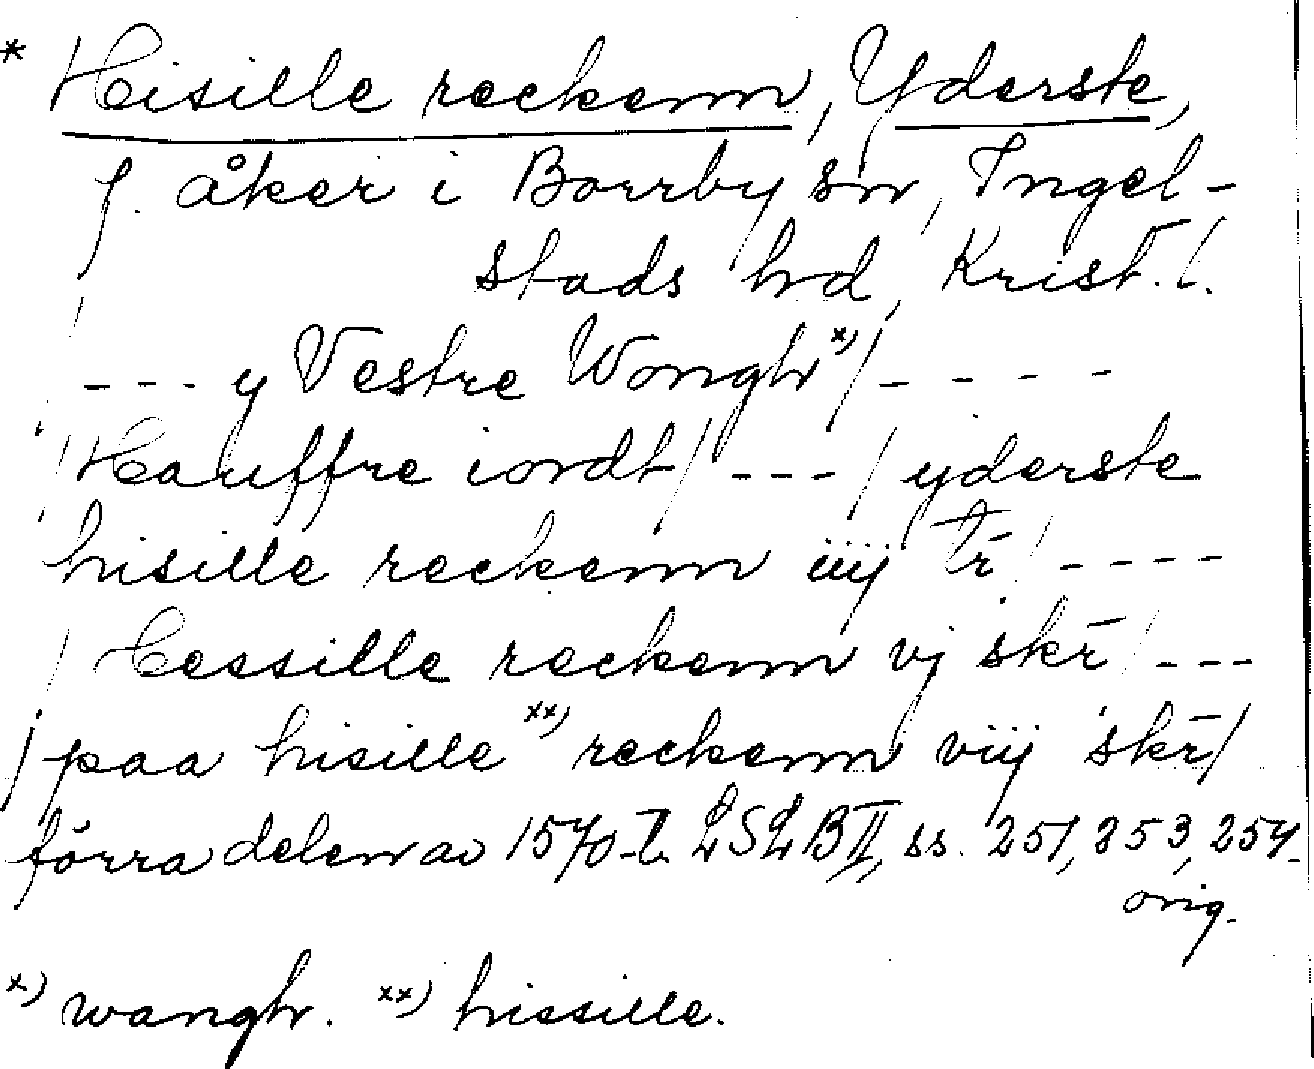 * Hisille reckenn, Yderste,
f. åker i Borrby sn, Ingel-
stads hd, Krist. l.
- - - y Vestre Wongh x) / - - - -
/ Hauffre iordt / - - - / yderste
hisille reckenn iiij tr̄ / - - - -
/ Hessille reckenn vj skr̄ / - - -
/ paa hisille xx) reckenn viij skr̄ /
förra delen av 1570-t. LSLB II, ss. 251, 253, 254.
orig.
x) wangh. xx) hissille.